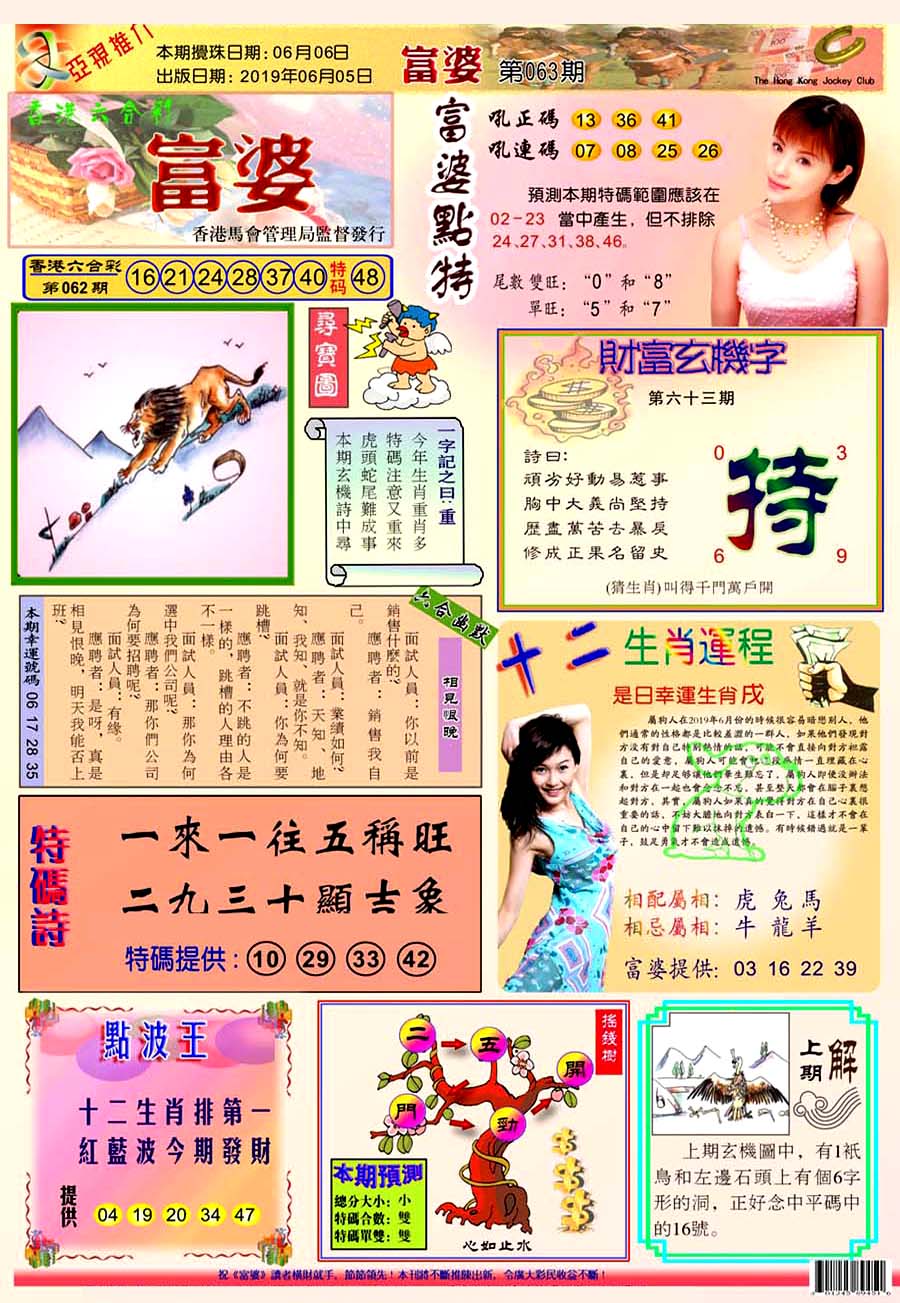 亞視推介
本期攪珠日期: 06月06日
出版日期: 2019年06月05日
富婆 第063期
The Hong Kong Jockey Club
香港六合彩
富婆
香港馬會管理局監督發行
香港六合彩
第062期
16 21 24 28 37 40 特码 48
富婆點特
吼正碼 13 36 41
吼連碼 07 08 25 26
預測本期特碼範圍應該在
02-23 當中產生，但不排除
24、27、31、38、46。
尾數 雙旺： “0” 和 “8”
單旺： “5” 和 “7”
尋寶圖
一字記之曰：重
今年生肖重肖多
特碼注意又重來
虎頭蛇尾難成事
本期玄機詩中尋
財富玄機字
第六十三期
詩曰：
頑劣好動易惹事
胸中大義尚堅持
歷盡萬苦去暴戾
修成正果名留史
0 3
持
6 9
(猜生肖)叫得千門萬戶開
六合幽默
相見恨晚
面試人員：你以前是
銷售什麼的？
應聘者：銷售我自
己。
面試人員：業績如何？
應聘者：天知、地
知、我知，就是你不知。
面試人員：你為何要
跳槽？
應聘者：不跳的人是
一樣的，跳槽的人理由各
不一樣。
面試人員：那你為何
選中我們公司呢？
應聘者：那你們公司
為何要招聘呢？
面試人員：有緣。
應聘者：是呀，真是
相見恨晚，明天我能否上
班？
本期幸運號碼 06 17 28 35
十二生肖運程
是日幸運生肖戌
屬狗人在2019年6月份的時候很容易暗戀別人，他
們通常的性格都是比較羞澀的一群人，如果他們發現對
方沒有對自己特別熱情的話，可能不會直接向對方袒露
自己的愛意，屬狗人可能會把這段感情一直埋藏在心
裏，但是却足够讓他們畢生難忘了，屬狗人即便沒辦法
和對方在一起也會念念不忘，甚至整天都會在腦子裏想
起對方。其實，屬狗人如果真的覺得對方在自己心裏很
重要的話，不妨大膽地向對方表白一下，這樣才不會在
自己的心中留下難以抹掉的遺憾。有時候錯過就是一輩
子，鼓足勇氣才不會造成遺憾。
相配屬相：虎 兔 馬
相忌屬相：牛 龍 羊
富婆提供: 03 16 22 39
特碼詩
一來一往五稱旺
二九三十顯吉象
特碼提供：10 29 33 42
點波王
十二生肖排第一
紅藍波今期發財
提供 04 19 20 34 47
搖錢樹
二 五 開
門 勁
本期預測
總分大小：小
特碼合數：雙
特碼單雙：雙
心如止水
上期解
上期玄機圖中，有1祇
鳥和左邊石頭上有個6字
形的洞，正好念中平碼中
的16號。
祝《富婆》讀者橫財就手，節節領先！本刊將不斷推陳出新，令廣大彩民收益不斷！